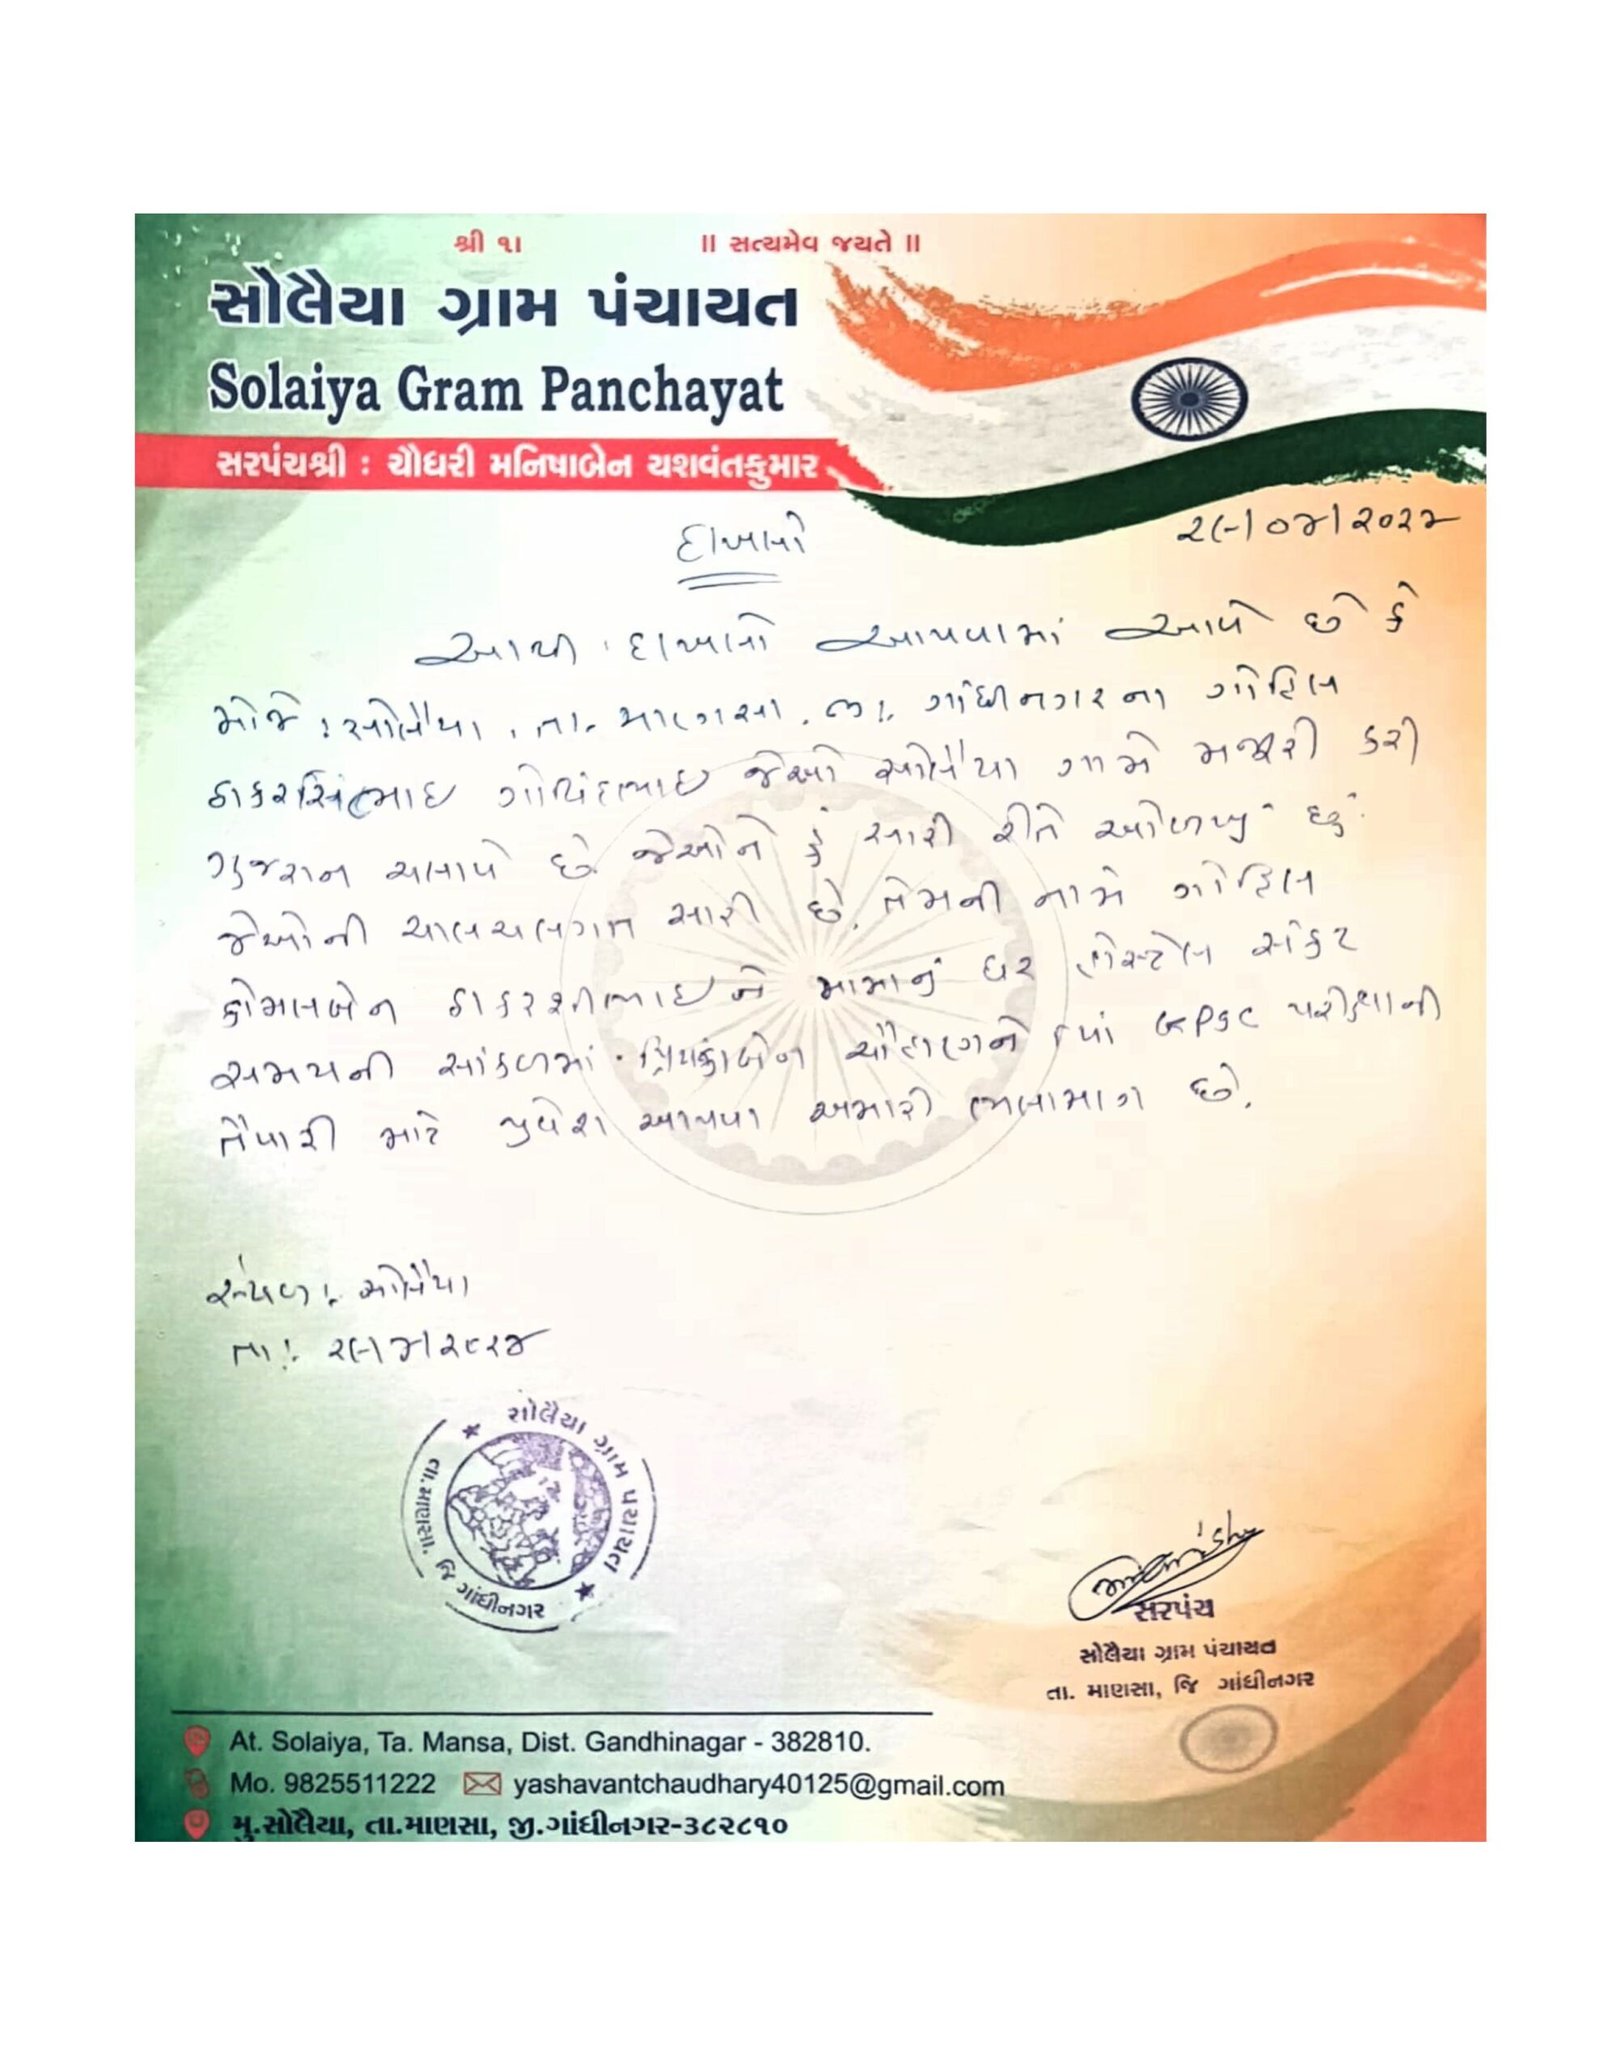 શ્રી ૧।
॥ સત્યમેવ જયતે ॥
સોલૈયા ગ્રામ પંચાયત
Solaiya Gram Panchayat
સરપંચશ્રી : ચૌધરી મનિષાબેન યશવંતકુમાર
દાખલો
આથી દાખલો આપવામાં આવે છે કે
મોજે : સોલૈયા, તા. માણસા, જી. ગાંધીનગરના ગોહિલ
ગોવિંદભાઇ જેઓ સોલૈયા ગામે મજૂરી કરી
ગુજરાન ચલાવે છે જેઓને હું સારી રીતે ઓળખું છું.
જેઓની ચાલચલગત સારી છે. તેમની નામે ગોહિલ
કોમલબેન ને મામાનું ઘર હોસ્ટેલ સંકટ
સમયની સાંકળમાં પ્રિયંકાબેન ચૌહાણને ત્યાં GPSC પરીક્ષાની
તૈયારી માટે પ્રવેશ આપવા અમારી ભલામણ છે.
સ્થળ : સોલૈયા
તા :
સોલૈયા ગ્રામ પંચાયત
તા. માણસા. જિ ગાંધીનગર
સરપંચ
સોલૈયા ગ્રામ પંચાયત
તા. માણસા, જિ ગાંધીનગર
At. Solaiya, Ta. Mansa, Dist. Gandhinagar - 382810.
Mo. 9825511222 yashavantchaudhary40125@gmail.com
મુ.સોલૈયા, તા.માણસા, જી.ગાંધીનગર-૩૮૨૮૧૦